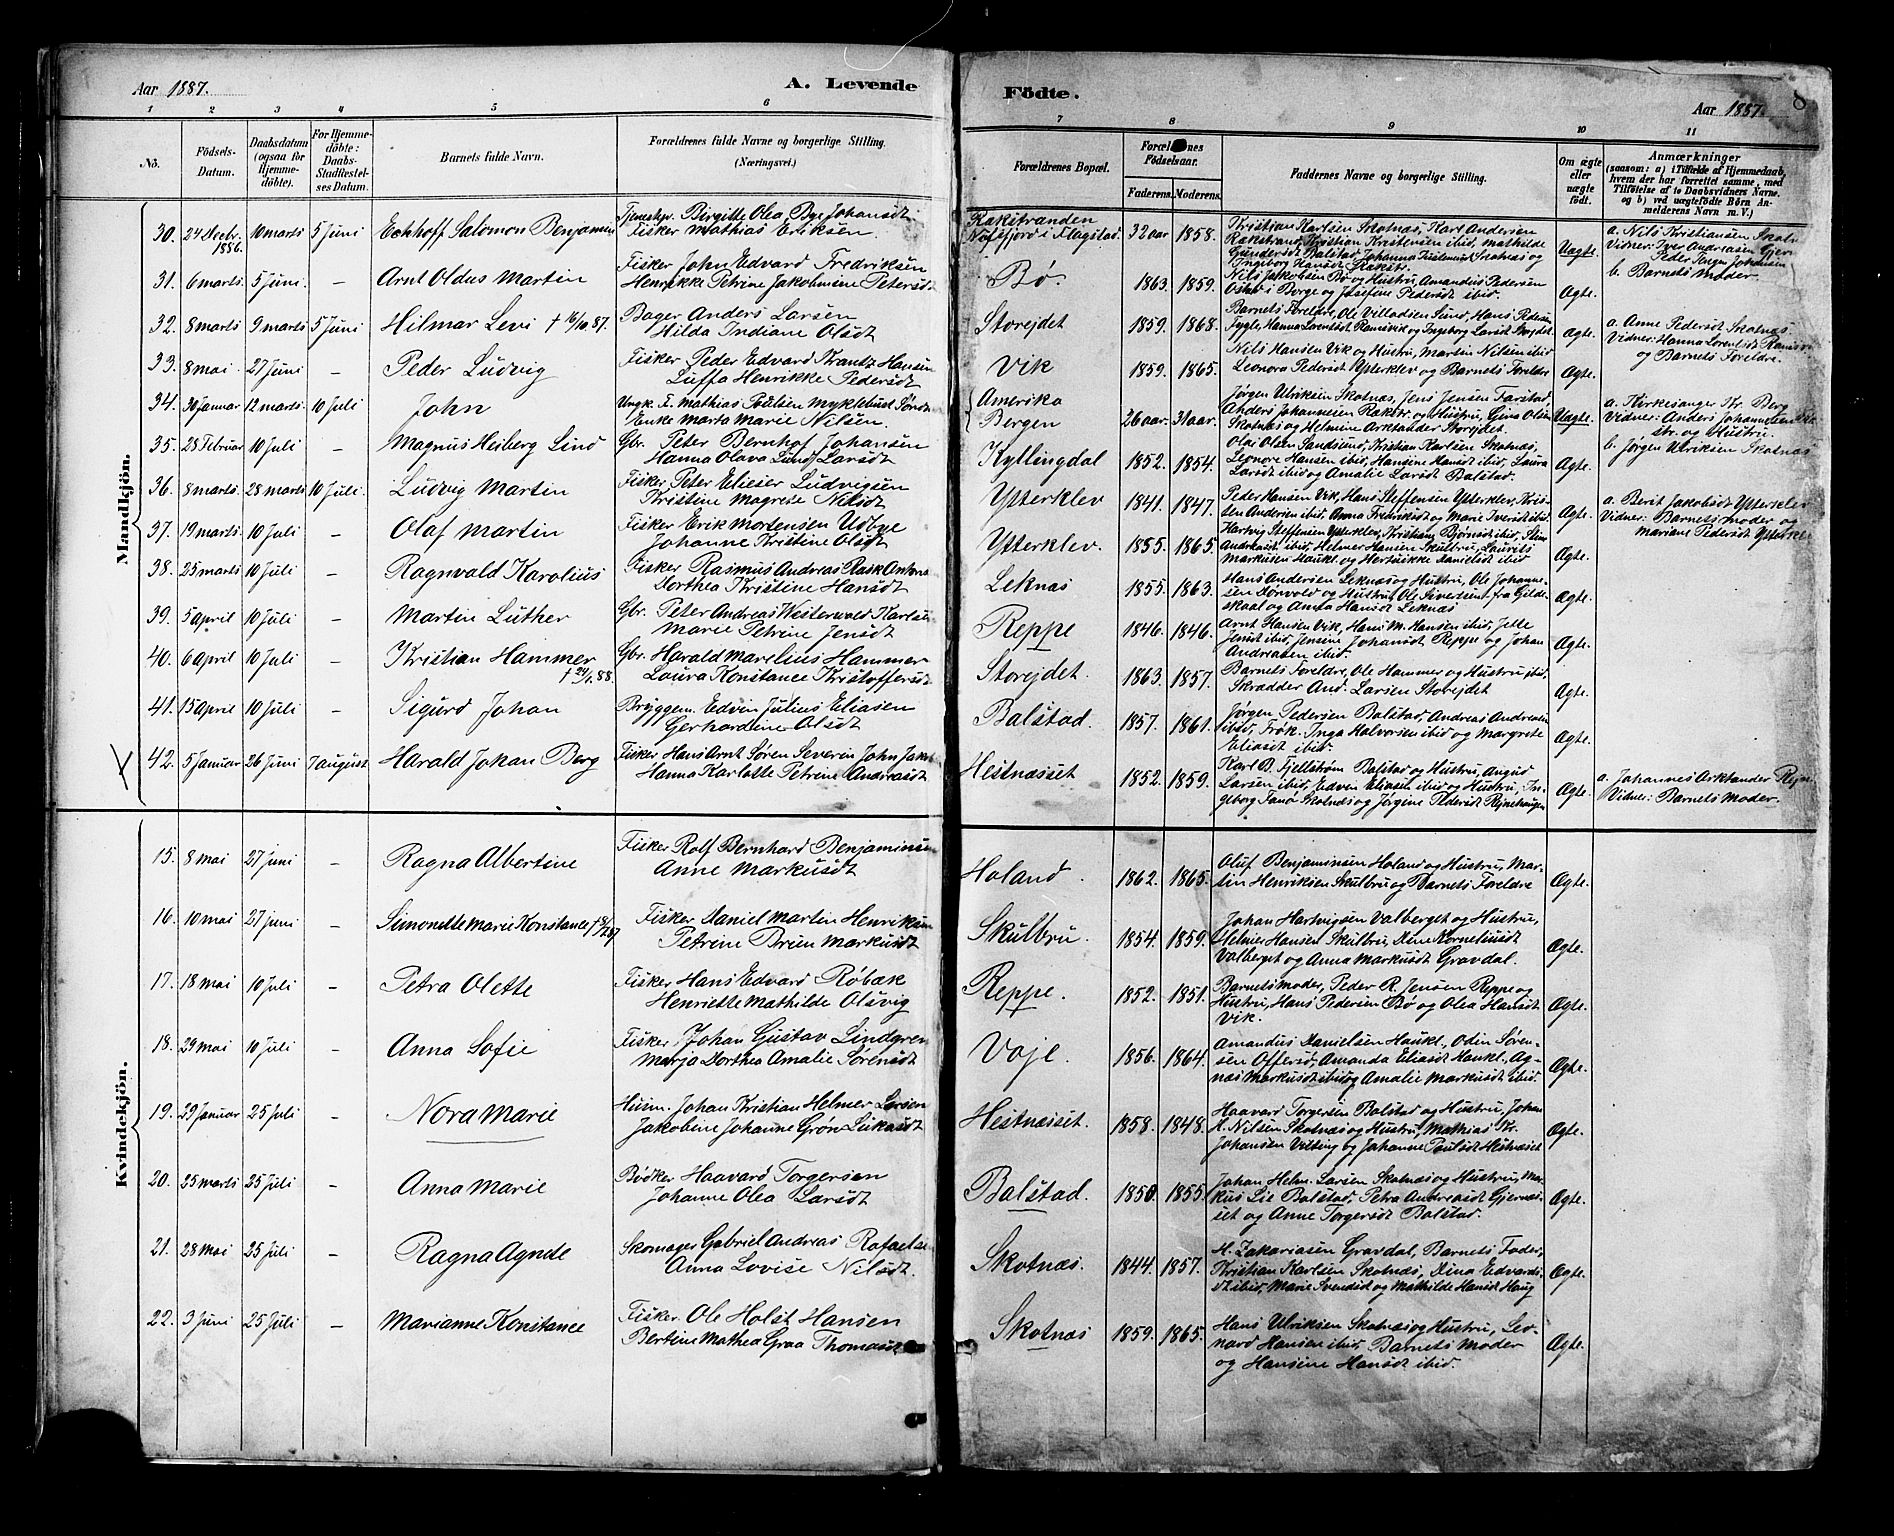 Aar 1887.
A. Levende
1 2 3 4 5 6
Nö.
Födsels-Datum.
Daabsdatum (ogsaa for Hjemmedöbte).
For Hjemmedöbte: Daabs-Stadfæstelses Datum.
Barnets fulde Navn.
Forældrenes fulde Navne og borgerlige Stilling. (Næringsvei.)
Mandkjön.
30. 24 Decbr. 1886. 10 marts 5 Juni Eckhoff Salomon Benjamin Tjenestepr. Birgitte Olea Bye Johansdt
Fisker Mathias Eriksen.
31. 6 marts 5 Juni. – Arnt Oldus Martin Fisker John Edvard Fredriksen
Henrikke Petrine Jakobmine Petersdt
32. 8 marts 9 marts 5 Juni Hilmar Levi † 16/10.87. Bager Anders Larsen
Hilda Indiane Olsdt
33. 8 mai. 27 Juni – Peder Ludvig Fisker Peder Edvard Krantz Hansen
Luffa Henrikke Pedersdt
34. 30 Januar 12 marts. 10 Juli John Ungk. F. Mathias Poulsen Myklebust
Enke Marta Marie Nilsen.
35. 28 Februar 10 Juli – Magnus Heiberg Lind Gbr. Peter Bernhof Johansen
Hanna Olava Lund Larsdt
36. 8 marts. 28 marts 10 Juli. Ludvig Martin Fisker Peter Elieser Ludvigsen
Kristine Magrete Nilsdt
37. 19 marts. 10 Juli. – Olaf Martin Fisker Erik Mortensen Udbye
Johanne Kristine Olsdt
38. 25 marts 10 Juli – Ragnvald Karolius Fisker Rasmus Andreas Rask Antons
Dorthea Kristine Hansdt
39. 5 april 10 Juli – Martin Luther Gbr. Peter Andreas Westerwald Karlsen
Marie Petrine Jensdt
40. 6 April 10 Juli – Kristian Hammer † 24/1.88. Gbr. Harald Marelius Hammer
Laura Konstance Kristoffersdt
41. 15 april 10 Juli – Sigurd Johan Bryggem. Edvin Julius Eliasen
Gerhardine Olsdt
42. 5 Januar 26 Juni 7 august Harald Johan Berg Fisker Hans Arnt Søren Severin John Jakob
Hanna Karlotte Petrine Andreasdt
Kvindekjön.
15. 8 mai 27 juni – Ragna Albertine Fisker Rolf Bernhard Benjaminsen
Anne Markusdt
16. 10 mai 27 juni – Simonette Marie Konstance Fisker Daniel Martin Henriksen
Petrine Bruun Markusdt
17. 18 mai 10 Juli – Petra Olette Fisker Hans Edvard Røbæk
Henriette Mathilde Olsvig
18. 29 mai 10 Juli – Anna Sofie Fisker Johan Gustav Lindgren
Marja Dorthea Amalie Sørensdt
19. 29 Januar 25 Juli – Nora Marie Huim. Johan Kristian Helmer Larsen
Jakobine Johanne Grøn Lukasdt
20. 25 marts 25 Juli – Anna Marie Bødker Haavard Torgersen
Johanne Olea Larsdt
21. 28 mai 25 Juli – Ragna Agnde Skomager Gabriel Andreas Rafaelsen
Anna Lovise Nilsdt.
22. 3 Juni 25 Juli – Marianne Konstance Fisker Ole Holst Hansen
Bertine Mathea Graa Thomasdt
Födte.
Aar 1887.
8
7 8 9 10 11
Forældrenes Bopæl.
Forældrenes Födselsaar.
Faderens. Moderens.
Faddernes Navne og borgerlige Stilling.
Om ægte eller uægte födt.
Anmærkninger
(saasom: a) i Tilfælde af Hjemmedaab, hvem der har forrettet samme, med Tilföielse af to Daabsvidners Navne, og b) ved uægtefödte Börn Anmelderens Navn m. V.)
Rækstranden
Nufsfjord i Flagstad. 32 aar 1858. Kristian Karlsen Skotnæs, Karl Andersen
Rækstrand, Kristian Kristensen ibid, Mathilde
Gundersdt Balstad, Johanna Kristensdt Skotnæs og
Ingeborg Hansdt Rækstr. Uægte. a. Nils Kristiansen Skotn
Vidner: Iver Andreasen Gjern
Peder Johansen
b. Barnets Moder.
Bø. 1863. 1859. Nils Jakobsen Bø og Hustru, Amandus Pedersen
Ostad i Borge og Josefine Pedersdt ibid. Ægte.
Storejdet 1859. 1868. Barnets Foreldre, Ole Villadsen Sund, Hans Pedersen
Tygle, Hanna Lorentsdt Ramsvik og Ingeborg Larsdt Storejdet. Ægte. a. Anne Pedersdt Skotnæs
Vidner: Hanna Lorentsdt Ramsvi
og Barnets Foreldre.
Vik 1859. 1865. Nils Hansen Vik og Hustru, Martin Nilsen ibid
Leonora Pedersdt Ytterklev og Barnets Foreldre Ægte.
Amerika
Bergen 26 aar. 31 aar. Jørgen Ulriksen Skotnæs, Jens Jensen Farstad
Anders Johannesen Rækstr. og Hustru, Gina Olsen
Skotnæs og Helmine Arktander Storejdet. Uægte. a. Kirkesanger Kr. Berg
Vidner: Anders Johannesen Ræk
str. og Hustru.
b. Jørgen Ulriksen Skotnæs
Kyllingdal 1852. 1854. Olai Olsen Sandsund, Kristian Karlsen Skotnæs,
Leonore Hansen ibid, Hansine Hansdt ibid, Laura
Larsdt ibid og Amalie Larsdt Balstad. Ægte.
Ytterklev 1841. 1847. Peder Hansen Vik, Hans Steffensen Ytterklev, Kris-
ten Andersen ibid, Anna Fredriksdt og Marie Iversdt ibid. Ægte. a. Berit Jakobsdt Ytterklev
Vidner: Barnets Moder og
Mariane Pedersdt Ytterkle
Ytterklev. 1855. 1865. Hartvig Steffensen Ytterklev, Kristiane Bjørnsdt ibid,
Andreasdt ibid, Helmer Hansen Skulbru, Laurits
Markusen Haukl og Hertsikke Danielsdt ibid Ægte.
Leknæs 1855. 1863. Hans Andersen Leknæs og Hustru, Ole Johanns-
sen Sørvold og Hustru, Ole Sivertsen fra Gilde-
skaal og Anda Hansdt Leknæs Ægte.
Reppe 1846. 1846. Arnt Hansen Vik, Hans M. Hansen ibid, Jette
Jensdt ibid, Jensine Johansdt Reppe og Johan
Andreasen ibid. Ægte.
Storejdet. 1863. 1857. Barnets Foreldre, Ole Hammer og Hustru ibid,
Skrædder And. Larsen Storejdet Ægte.
Balstad. 1857. 1861. Jørgen Pedersen Balstad, Andreas Andreasen
ibid, Frøk. Inga Halvorsen ibid og Margrete
Eliasdt ibid. Ægte.
Hestnæsset 1852. 1859. Karl B. Fjellstrøm Balstad og Hustru, August
Larsen ibid, Edvin Eliasen ibid og Hustru, In-
geborg Fanø Skotnæs og Jørgine Pedersdt Rejnehaugen Ægte. a. Johannes Arktander Rejn
Vidner: Barnets Moder.
Holand. 1862. 1865. Oluf Benjaminsen Holand og Hustru, Mar-
tin Henriksen Skulbru og Barnets Foreldre Ægte.
Skulbru 1854. 1859. Johan Hartvigsen Valberget og Hustru,
Helmer Hansen Skulbru, Dine Korneliusdt
Valberget og Anna Markusdt Gravdal. Ægte.
Reppe. 1852. 1851. Barnets Moder, Peder R. Jensen Reppe og
Hustru, Hans Pedersen Bø og Olea Hansdt
Vik. Ægte.
Voje. 1856. 1864. Amandus Danielsen Haukl., Odin Søren-
sen Offersø, Amanda Eliasdt Haukl., Ag-
næs Markusdt ibid og Amalie Markusdt ibid. Ægte.
Hestnæsset. 1858. 1848. Haavard Torgersen Balstad og Hustru, Johan
H. Nilsen Skotnæs og Hustru, Mathias Kr.
Johansen Vilting og Johanne Paulsdt Hestnæsset Ægte.
Balstad. 1850. 1855. Johan Helm. Larsen Skotnæs og Hustru, Mar-
kus Lie Balstad, Petra Andreasdt Gjernæs-
set og Anne Torgersdt Balstad. Ægte.
Skotnæs. 1844. 1857. H. Zakariasen Gravdal, Barnets Fader,
Kristian Karlsen Skotnæs, Dina Edvards-
dt ibid, Marie Svendsdt og Mathilde Hansdt Haug Ægte.
Skotnæs 1859. 1865. Hans Ulriksen Skotnæs og Hustru, Leo-
nard Hansen ibid, Barnets Moder
og Hansine Hansdt ibid. Ægte.